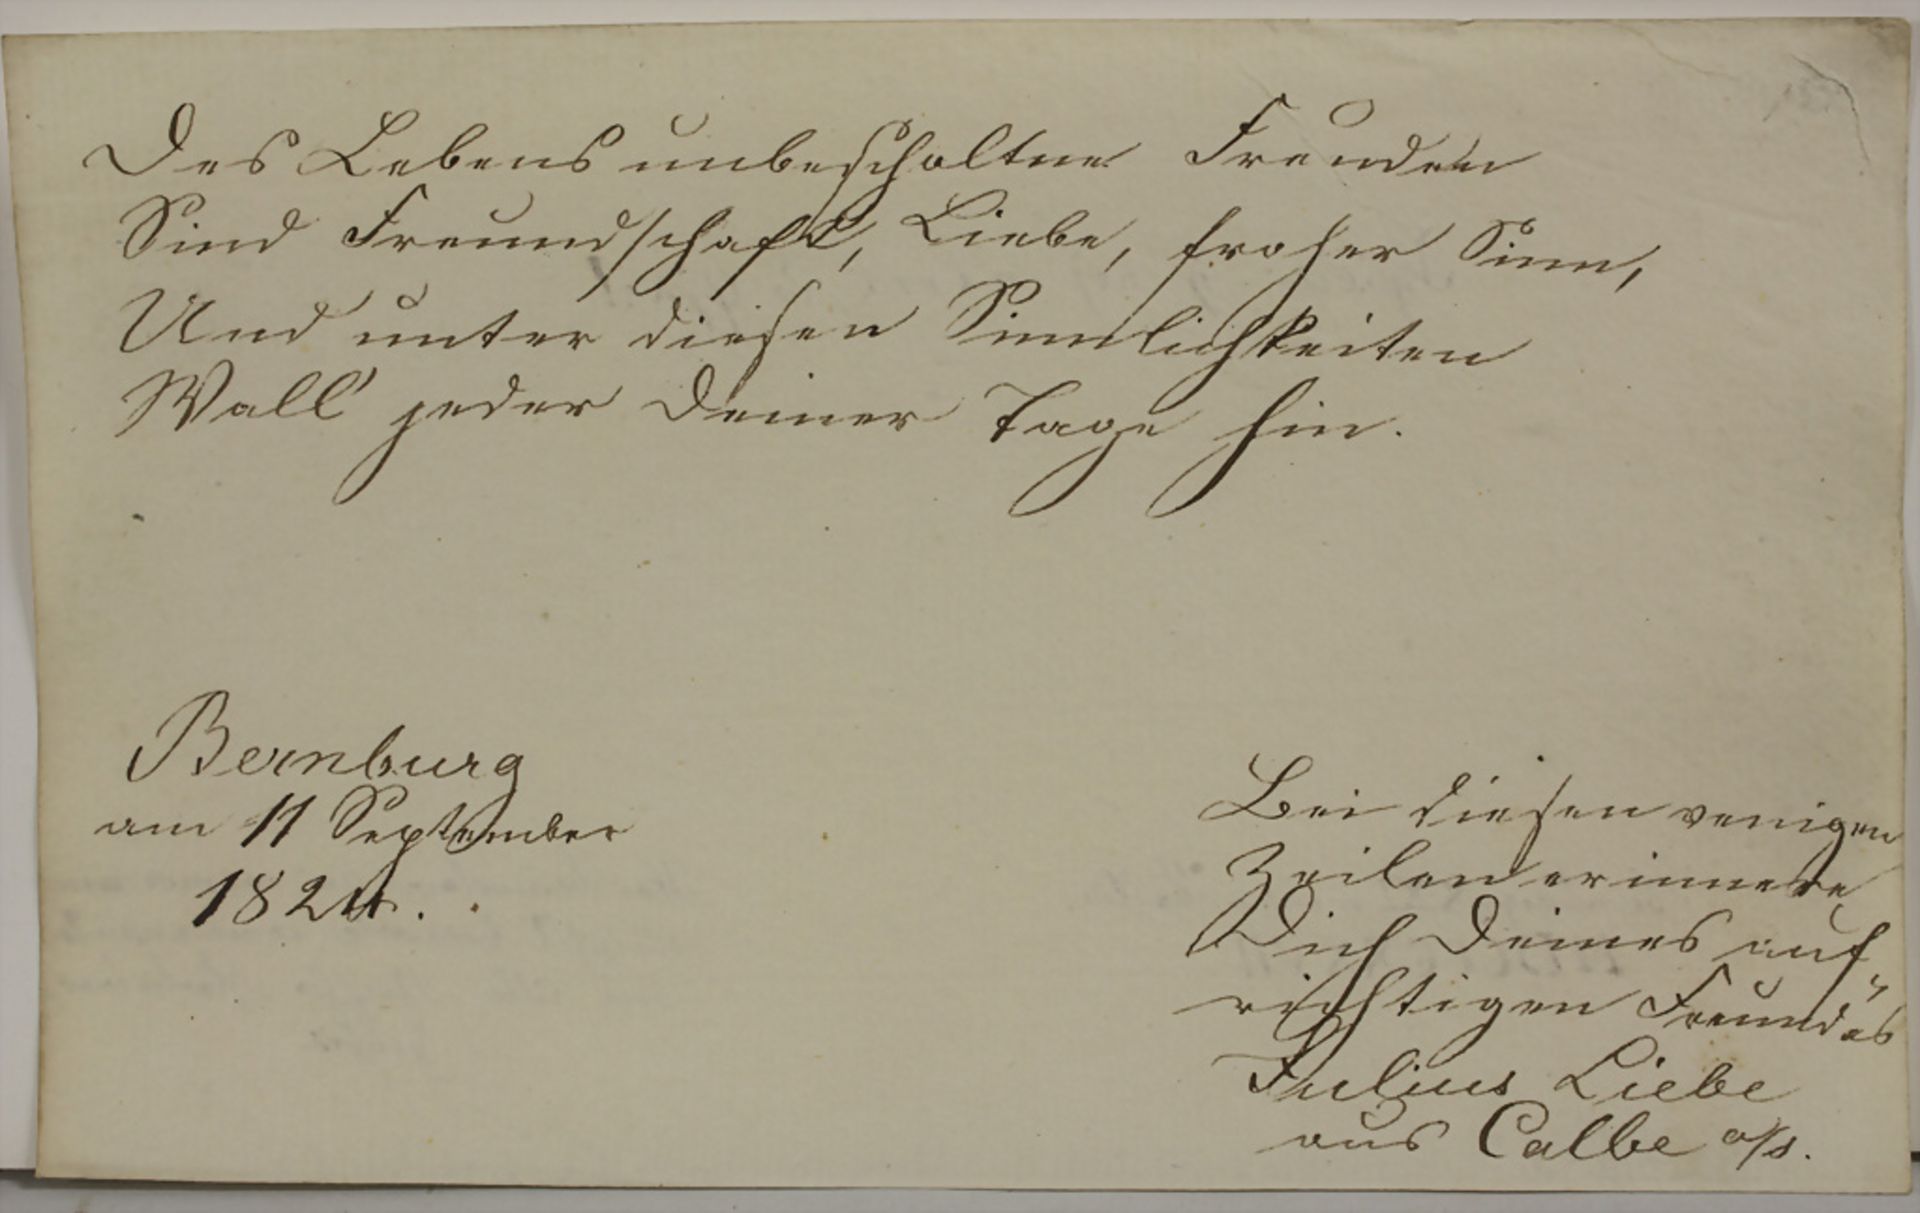 Des Lebens unbescholtne Freuden
Sind Freundschaft, Liebe, froher Sinn,
Und unter diesen Sinnlichkeiten
Wall' jeder Deiner Tage hin.
Bernburg
am 11 September
182
Bei diesen wenigen
Zeilen erinnere
Dich Deines auf-
richtigen Freundes
Julius Liebe
aus Calbe a/s.